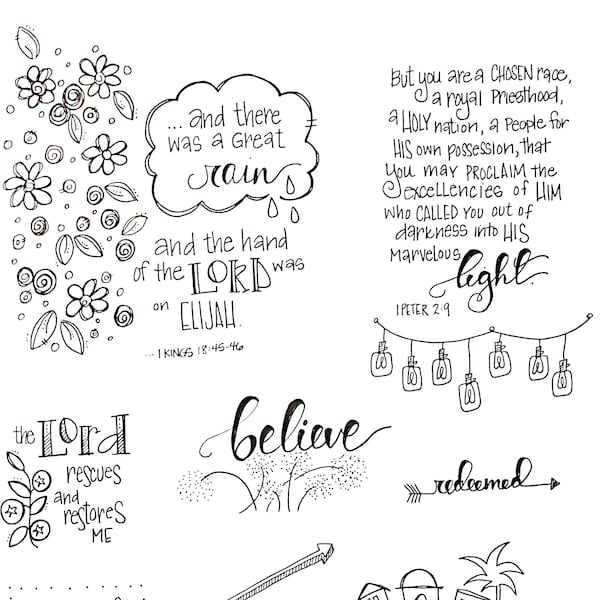 ...and there
was a Great
rain
and the hand
of the LORD was
on
ELIJAH.
...1 KINGS 18:45-46
But you are a CHOSEN race,
a royal Priesthood,
a HOLY nation, a People for
HIS own possession, that
You may PROCLAIM the
excellencies of HIM
who CALLED You out of
darkness into HIS
Marvelous
light.
1 PETER 2:9
the Lord
rescues
and
restores
ME
believe
redeemed